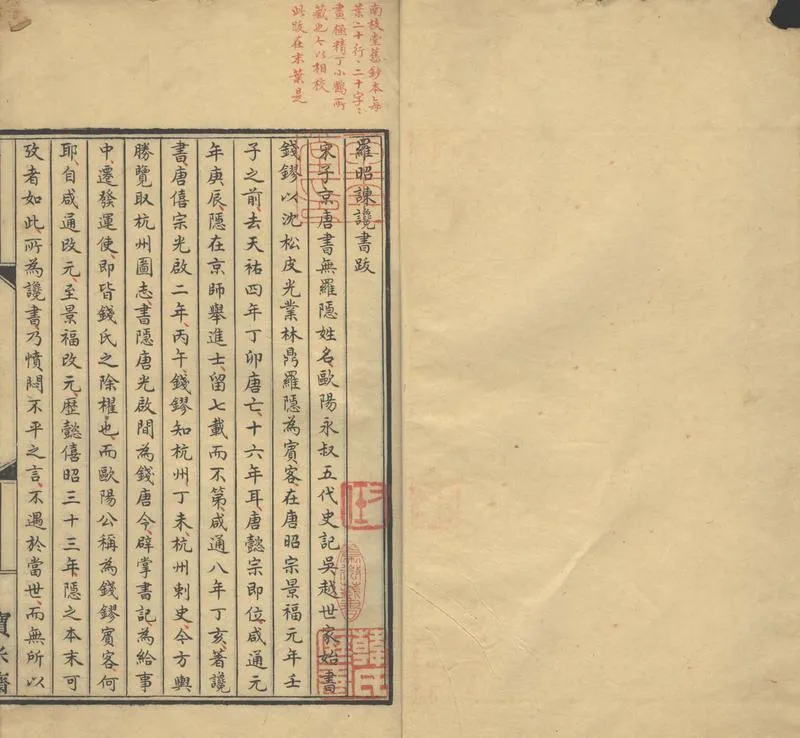 南枝堂舊鈔本每
葉二十行〻二十字〻
畫極精丁小鸖所
藏也以相校
此跋在末葉是
羅昭諫讒書跋
宋子京唐書無羅隱姓名歐陽永叔五代史記吳越世家始書
錢鏐以沈松皮光業林鼎羅隱為賓客在唐昭宗景福元年壬
子之前去天祐四年丁卯唐亡十六年耳唐懿宗即位咸通元
年庚辰隱在京師舉進士留七載而不第咸通八年丁亥著讒
書唐僖宗光啟二年丙午錢鏐知杭州丁未杭州刺史今方輿
勝覽取杭州圖志書隱唐光啟間為錢唐令辟掌書記為給事
中遷發運使即皆錢氏之除櫂也而歐陽公稱為錢鏐賓客何
耶自咸通改元至景福改元歷懿僖昭三十三年隱之本末可
攷者如此所為讒書乃憤悶不平之言不遇於當世而無所以